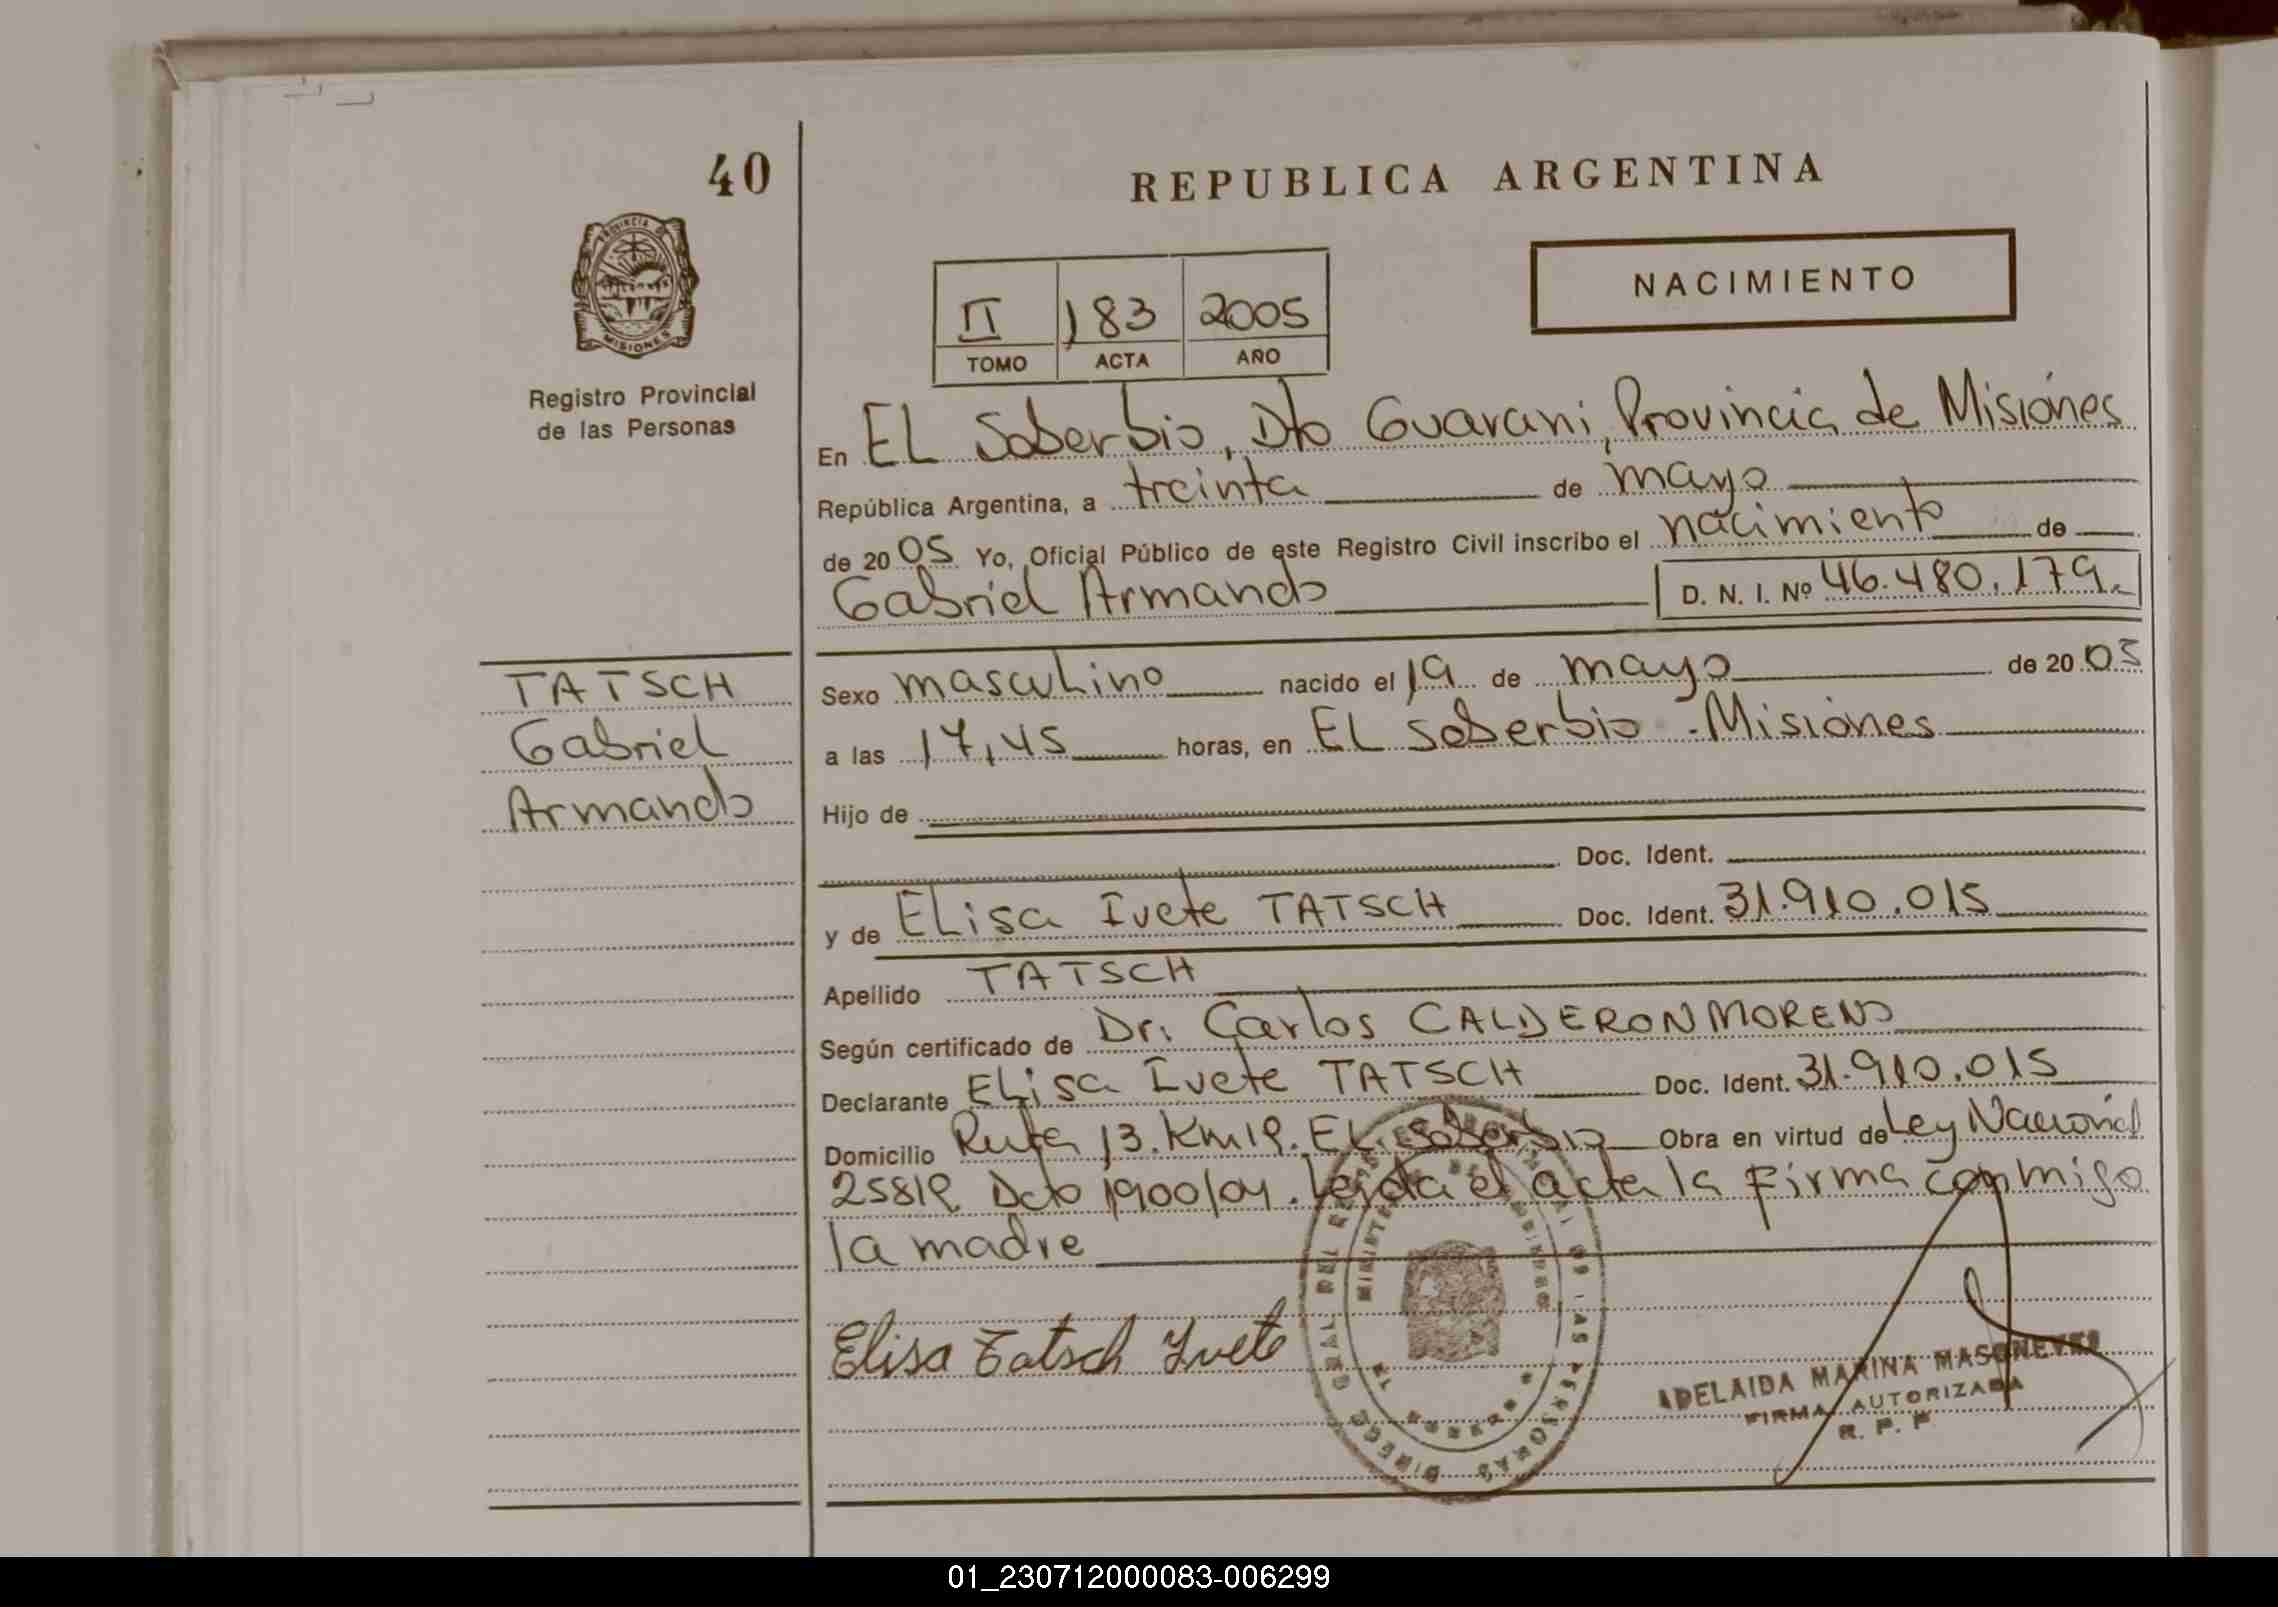 40
REPUBLICA ARGENTINA
PROVINCIA DE
MISIONES
Registro Provincial
de las Personas
II 183 2005
TOMO ACTA AÑO
NACIMIENTO
En EL Soberbio, Dto Guarani, Provincia de Misiones
República Argentina, a treinta de mayo
de 2005 Yo, Oficial Público de este Registro Civil inscribo el nacimiento de
Gabriel Armando D. N. I. Nº 46.480.179.
TATSCH
Gabriel
Armando
Sexo masculino nacido el 19 de mayo de 2005
a las 17,45 horas, en EL Soberbio - Misiones
Hijo de
Doc. Ident.
y de ELisa Ivete TATSCH Doc. Ident. 31.910.015
Apellido TATSCH
Según certificado de Dr. Carlos CALDERON MORENO
Declarante ELisa Ivete TATSCH Doc. Ident. 31.910.015
Domicilio Ruta 13. Km 18. EL Soberbio Obra en virtud de Ley Nacional
25818 Dcto 1900/04. Leída el acta la Firma conmigo
la madre
Elisa Tatsch Yvete
ADELAIDA MARINA MASONEVES
FIRMA AUTORIZADA
R. P. P.
01_230712000083-006299